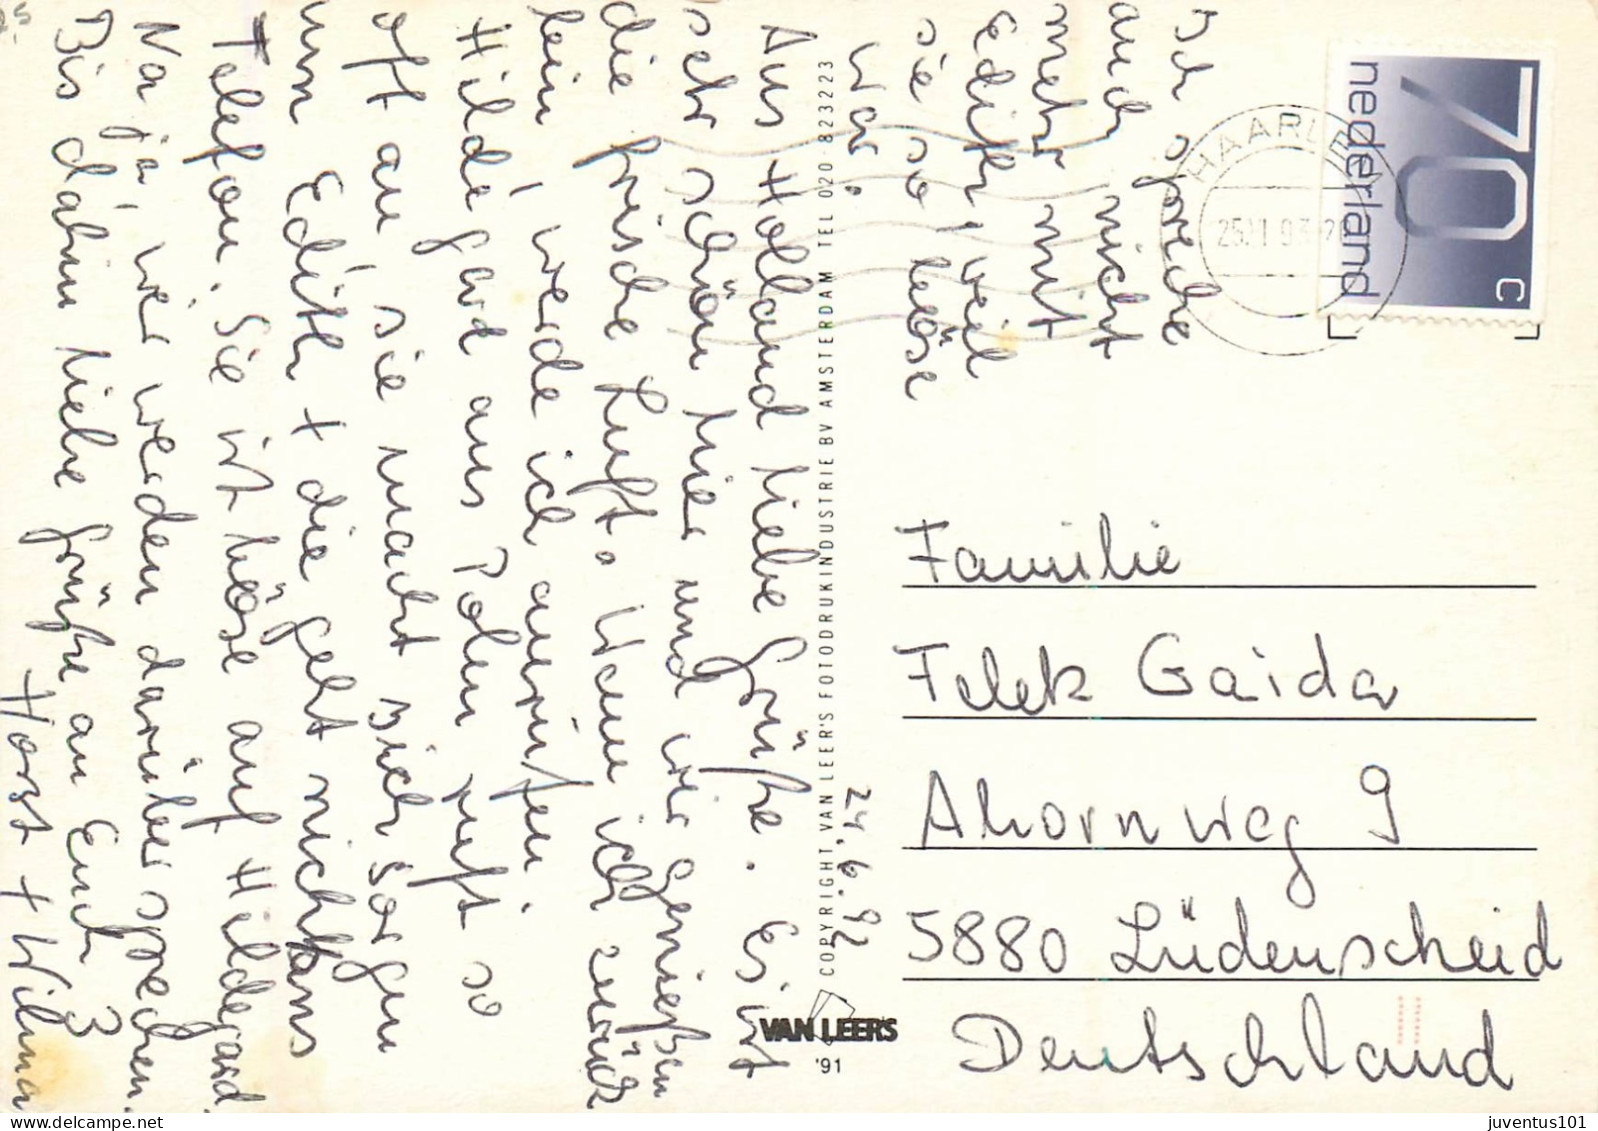 24.6.92
Aus Holland liebe Grüße. Es ist
sehr schön hier und wir genießen
die frische Luft. Wenn ich zurück
bin, werde ich anrufen.
Hildegard aus Polen ruft so
oft an sie macht sich Sorgen
um Edith + die geht nicht ans
Telefon. Sie ist böse auf Hildegard.
Na ja, wir werden darüber sprechen.
Bis dahin liebe Grüße an Euch 3
Horst + Wilma
Ich spreche
auch nicht
mehr mit
Edith, weil
sie so böse
war.
Familie
Felek Gaida
Ahornweg 9
5880 Lüdenscheid
Deutschland
nederland
70 c
HAARLEM
COPYRIGHT VAN LEER'S FOTODRUKINDUSTRIE BV AMSTERDAM TEL 020 823223
VAN LEER'S
'91
juventus101